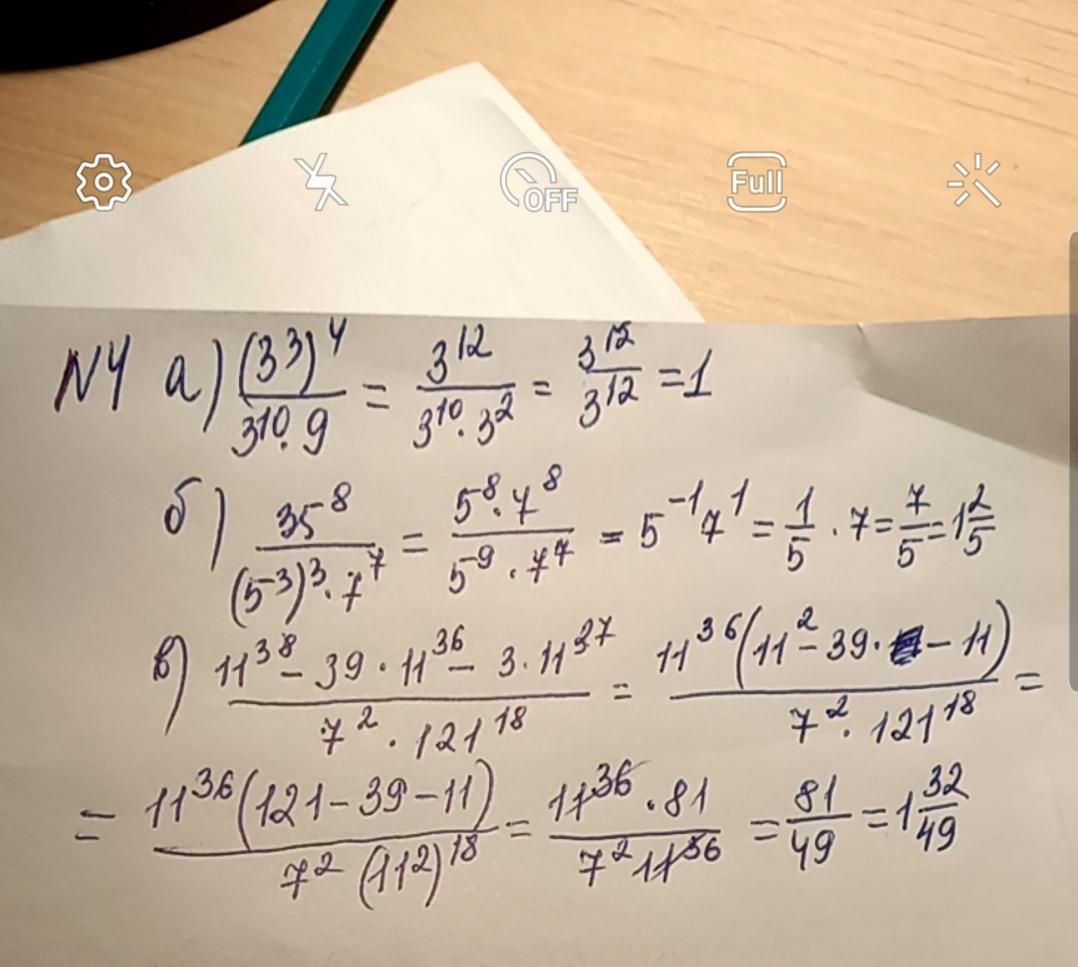 OFF Full
N4 а) (3³)⁴/(3¹⁰·9) = 3¹²/(3¹⁰·3²) = 3¹²/3¹² = 1
б) 35⁸/((5⁻³)³·7⁷) = 5⁸·7⁸/(5⁻⁹·7⁷) = 5⁻¹7¹ = 1/5 · 7 = 7/5 = 1 2/5
в) (11³⁸ - 39·11³⁶ - 3·11³⁷)/(7²·121¹⁸) = 11³⁶(11² - 39· - 11)/(7²·121¹⁸) =
= 11³⁶(121 - 39 - 11)/(7²(11²)¹⁸) = 11³⁶·81/(7²11³⁶) = 81/49 = 1 32/49